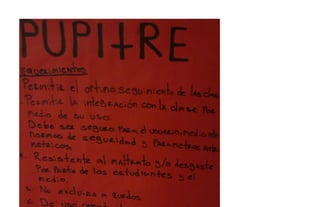 PUPITRE
REQUERIMIENTOS
Permitir el oportuno seguimiento de las clase
Permitir la integración con la clase por
medio de su uso.
Debe ser seguro para el usuario mediante
normas de seguridad y parametros antro
metricos.
Resistente al maltrato y/o desgaste
por parte de los estudiantes y el
medio.
5. No excluira a zurdos
6. De uso